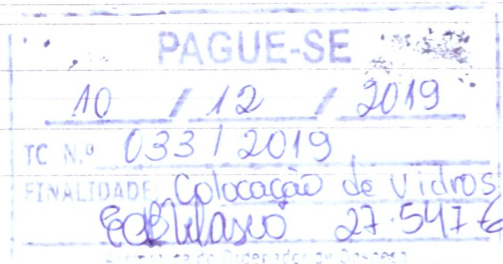 PAGUE-SE
10 / 12 / 2019
TC N.º 033 / 2019
FINALIDADE Colocação de Vidros
27.547-6